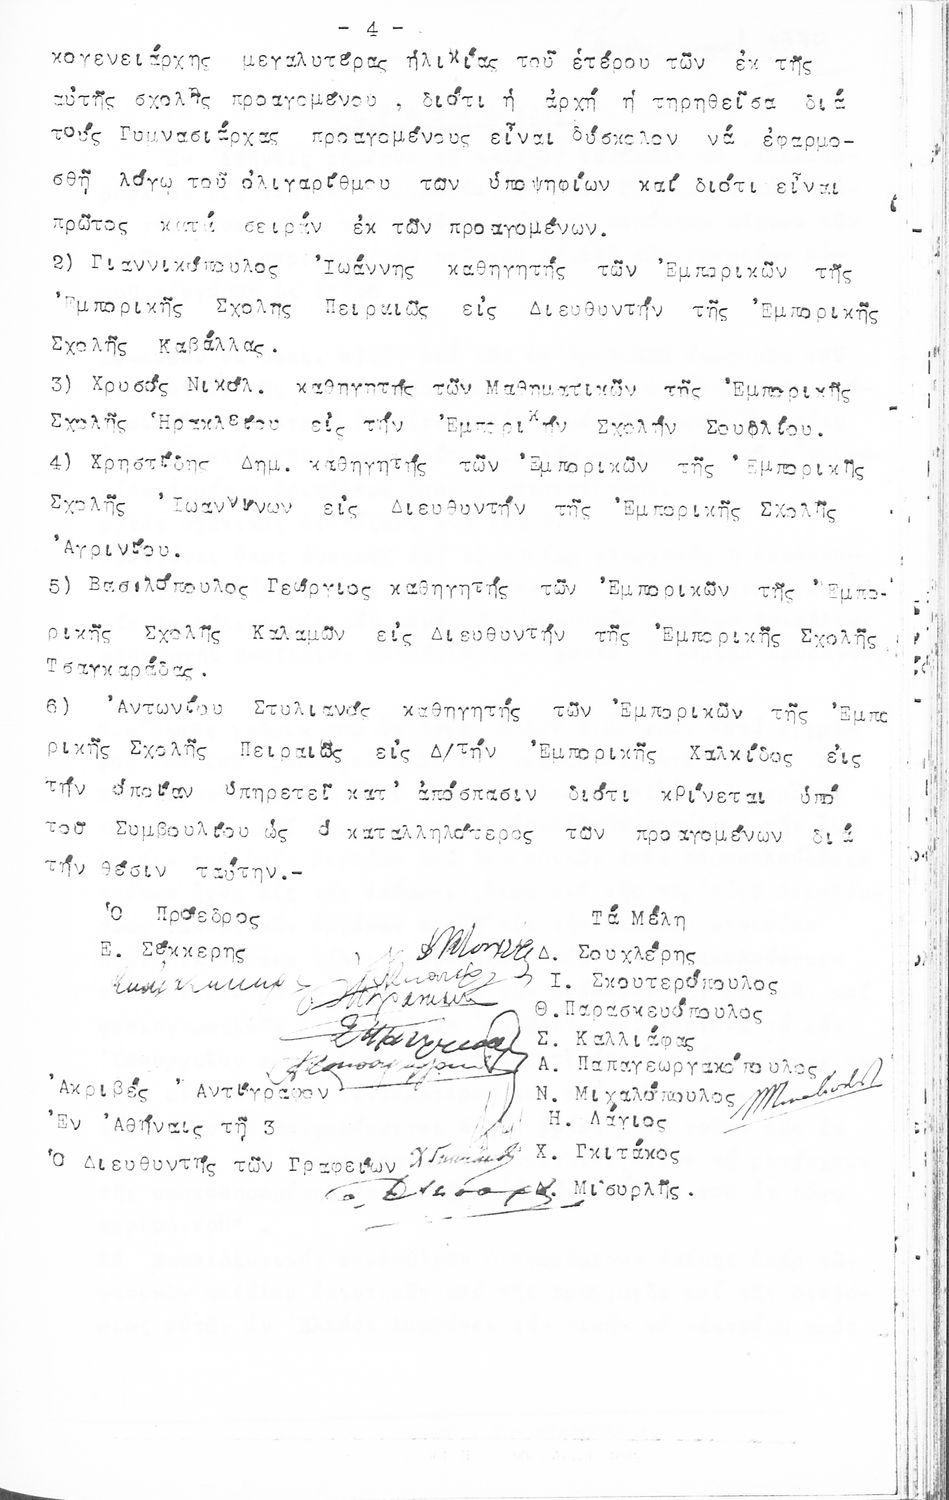 - 4 -
κογενειάρχης μεγαλυτέρας ἡλικίας τοῦ ἑτέρου τῶν ἐκ τῆς
αὐτῆς σχολῆς προαγομένου , διότι ἡ ἀρχή ἡ τηρηθεῖσα διά
τούς Γυμνασιάρχας προαγομένους εἶναι δύσκολον νά ἐφαρμο-
σθῆ λόγῳ τοῦ ὀλιγαρίθμου τῶν ὑποψηφίων καί διότι εἶναι
πρῶτος κατά σειράν ἐκ τῶν προαγομένων.
2) Γιαννικόπουλος Ἰωάννης καθηγητής τῶν Ἐμπορικῶν τῆς
Ἐμπορικῆς Σχολῆς Πειραιῶς εἰς Διευθυντήν τῆς Ἐμπορικῆς
Σχολῆς Καβάλλας.
3) Χρυσός Νικόλ. καθηγητής τῶν Μαθηματικῶν τῆς Ἐμπορικῆς
Σχολῆς Ἡρακλείου εἰς τήν Ἐμπορικήν Σχολήν Σουφλίου.
4) Χρηστίδης Δημ. καθηγητής τῶν Ἐμπορικῶν τῆς Ἐμπορικῆς
Σχολῆς Ἰωαννίνων εἰς Διευθυντήν τῆς Ἐμπορικῆς Σχολῆς
Ἀγρινίου.
5) Βασιλόπουλος Γεώργιος καθηγητής τῶν Ἐμπορικῶν τῆς Ἐμπο-
ρικῆς Σχολῆς Καλαμῶν εἰς Διευθυντήν τῆς Ἐμπορικῆς Σχολῆς
Τσαγκαράδας.
6) Ἀντωνίου Στυλιανός καθηγητής τῶν Ἐμπορικῶν τῆς Ἐμπο
ρικῆς Σχολῆς Πειραιῶς εἰς Δ/τήν Ἐμπορικῆς Χαλκίδος εἰς
τήν ὁποίαν ὑπηρετεῖ κατ' ἀπόσπασιν διότι κρίνεται ὑπό
τοῦ Συμβουλίου ὡς ὁ καταλληλότερος τῶν προαγομένων διά
τήν θέσιν ταύτην.-
Ὁ Πρόεδρος Τά Μέλη
Ε. Σέκκερης Δ. Σουχλέρης
Ι. Σκουτερόπουλος
Θ. Παρασκευόπουλος
Σ. Καλλιάφας
Α. Παπαγεωργακόπουλος
Ἀκριβές Ἀντίγραφον Ν. Μιχαλόπουλος
Ἐν Ἀθήναις τῆ 3 Η. Λάγιος
Ὁ Διευθυντής τῶν Γραφείων Χ. Γκιτάκος
Μισυρλῆς.